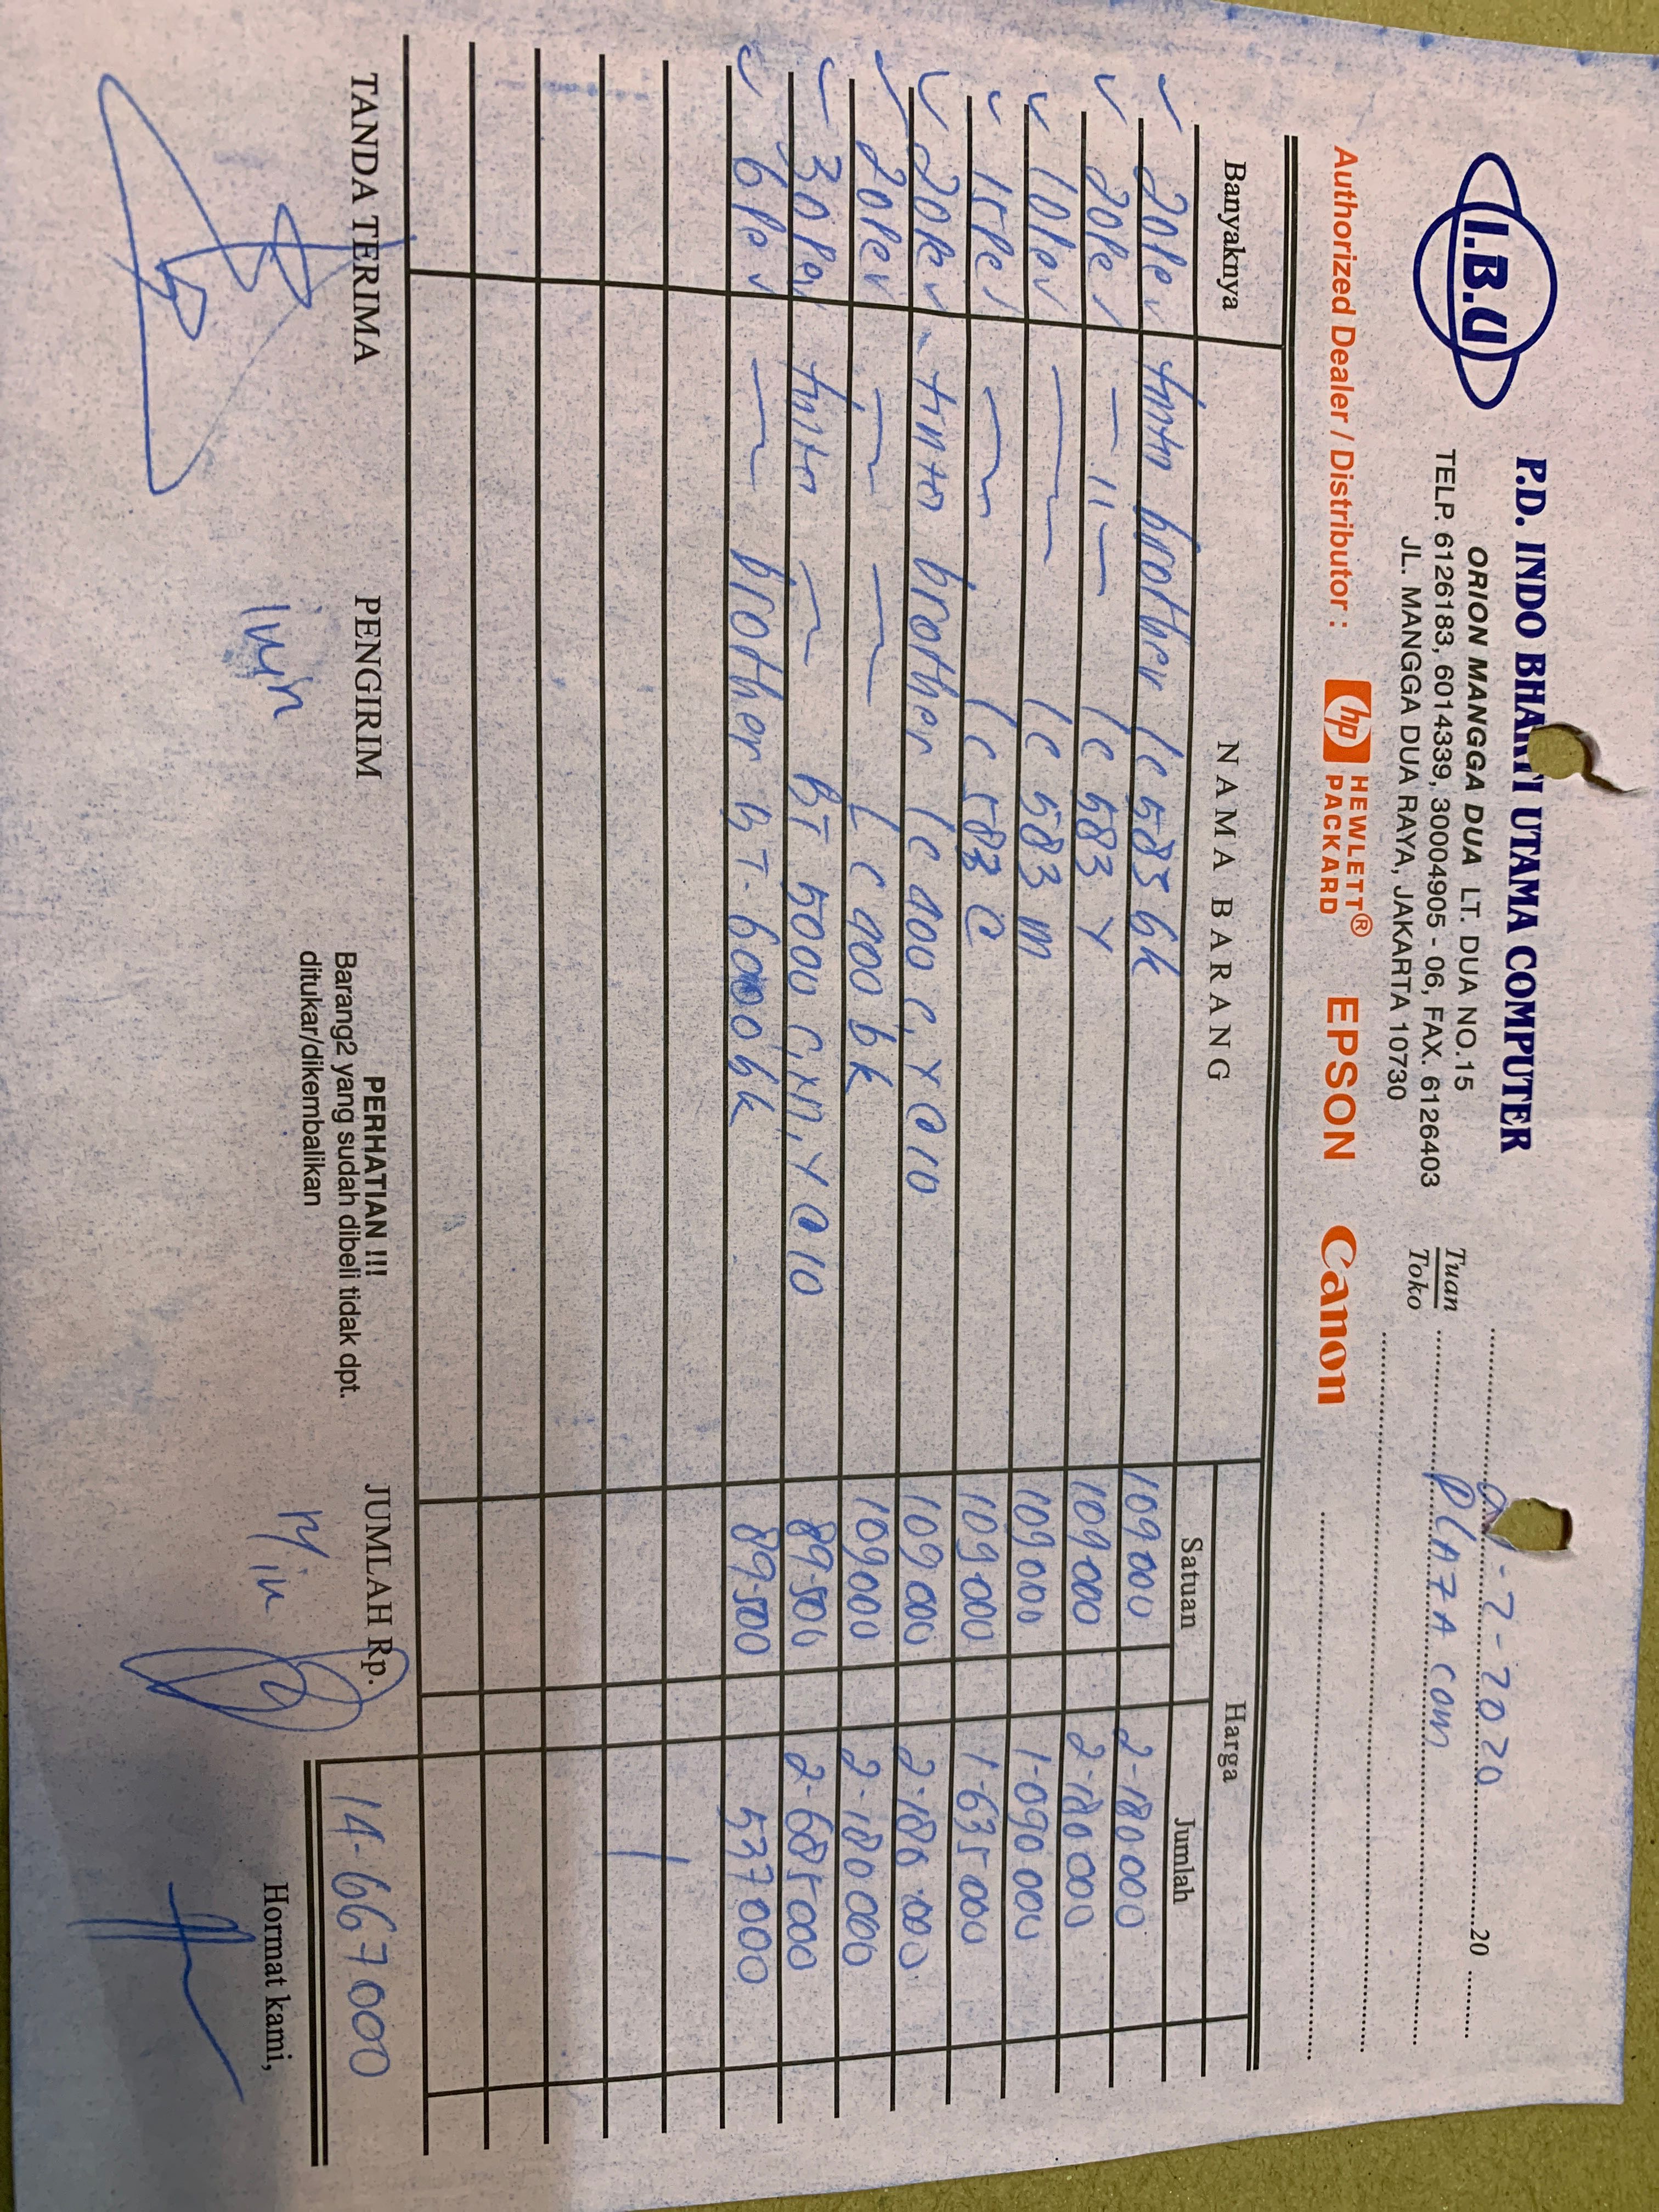 I.B.U
P.D. INDO BHAKTI UTAMA COMPUTER
ORION MANGGA DUA LT. DUA NO.15
TELP. 6126183, 6014339, 30004905 - 06, FAX. 6126403
JL. MANGGA DUA RAYA, JAKARTA 10730
-7-2020 20
Tuan
Toko
PLAZA com
Authorized Dealer / Distributor : hp HEWLETT® PACKARD EPSON Canon
Banyaknya NAMA BARANG Harga
Satuan Jumlah
20 Pcs tinta brother lc 583 bk 109 000 2-180 000
20 Pcs — 11 — lc 583 Y 109 000 2-180 000
10 Pcs — lc 583 m 109 000 1-090 000
15 Pcs — lc 583 C 109 000 1-635 000
20 Pcs tinta brother lc 400 C, Y @ 10 109 000 2-180 000
20 Pcs — — Lc 400 bk 109 000 2-180 000
30 Pcs tinta — BT 5000 C, m, Y @ 10 89-500 2-685 000
6 Pcs — brother BT-6000 bk 89-500 537 000
TANDA TERIMA PENGIRIM PERHATIAN !!! JUMLAH Rp. 14-667 000
Barang2 yang sudah dibeli tidak dpt.
ditukar/dikembalikan
Hormat kami,